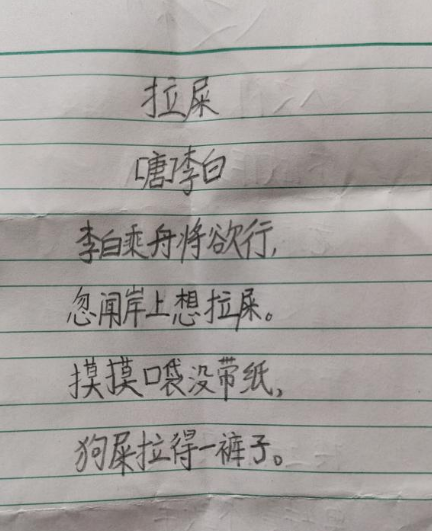 拉屎
[唐]李白
李白乘舟将欲行,
忽闻岸上想拉屎。
摸摸口袋没带纸,
狗屎拉得一裤子。